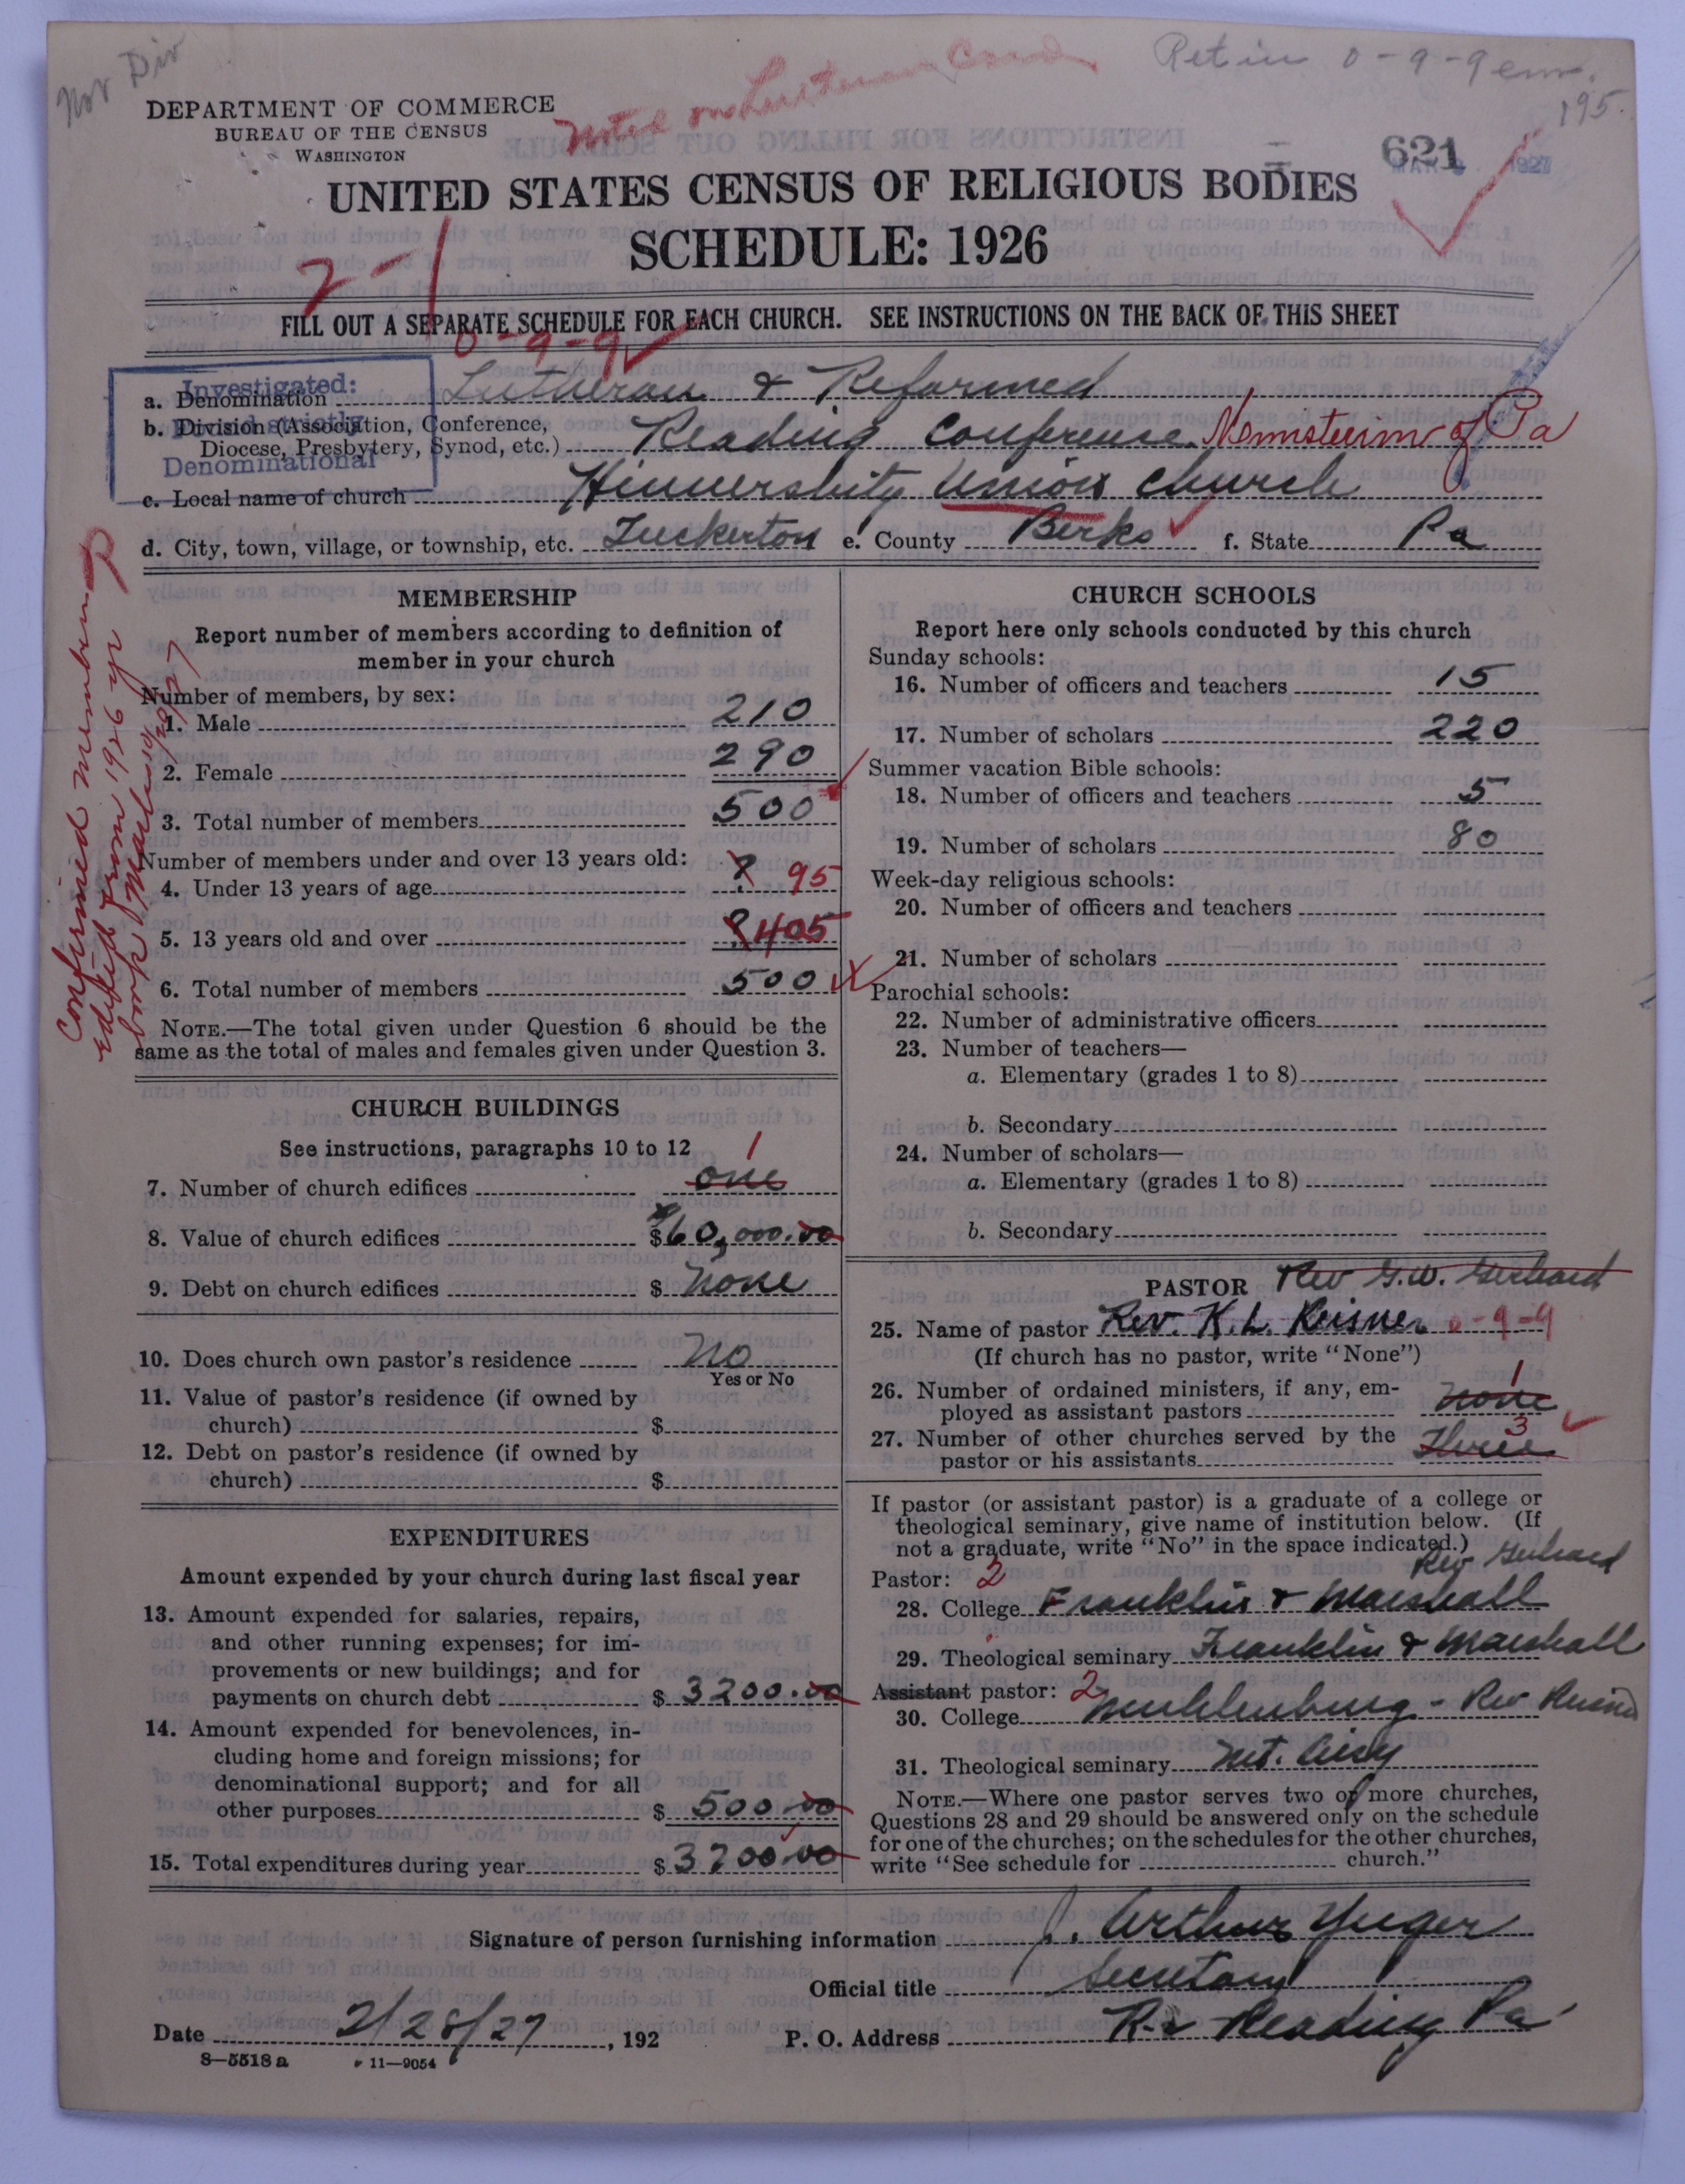 Nor Div
Noted on Lutheran Card
Ret in 0-9-9 em.
195.
DEPARTMENT OF COMMERCE
BUREAU OF THE CENSUS
WASHINGTON
621
1927
UNITED STATES CENSUS OF RELIGIOUS BODIES
SCHEDULE: 1926
2-1
FILL OUT A SEPARATE SCHEDULE FOR EACH CHURCH. SEE INSTRUCTIONS ON THE BACK OF THIS SHEET
0-9-9
Investigated:
Denominational
a. Denomination Lutheran & Reformed
b. Division (Association, Conference,
Diocese, Presbytery, Synod, etc.) Reading Conference. of Pa
c. Local name of church Union Church
d. City, town, village, or township, etc. Tuckerton e. County Berks f. State Pa
Confirmed members
edited from 1926 yr
book
MEMBERSHIP
Report number of members according to definition of
member in your church
Number of members, by sex:
1. Male 210
2. Female 290
3. Total number of members 500
Number of members under and over 13 years old:
4. Under 13 years of age ? 95
5. 13 years old and over ? 405
6. Total number of members 500
NOTE.—The total given under Question 6 should be the
same as the total of males and females given under Question 3.
CHURCH BUILDINGS
See instructions, paragraphs 10 to 12
7. Number of church edifices one 1
8. Value of church edifices $60,000.00
9. Debt on church edifices $ None
10. Does church own pastor's residence No
Yes or No
11. Value of pastor's residence (if owned by
church) $
12. Debt on pastor's residence (if owned by
church) $
EXPENDITURES
Amount expended by your church during last fiscal year
13. Amount expended for salaries, repairs,
and other running expenses; for im-
provements or new buildings; and for
payments on church debt $ 3200.00
14. Amount expended for benevolences, in-
cluding home and foreign missions; for
denominational support; and for all
other purposes $ 500.00
15. Total expenditures during year $ 3700.00
CHURCH SCHOOLS
Report here only schools conducted by this church
Sunday schools:
16. Number of officers and teachers 15
17. Number of scholars 220
Summer vacation Bible schools:
18. Number of officers and teachers 5
19. Number of scholars 80
Week-day religious schools:
20. Number of officers and teachers
21. Number of scholars
Parochial schools:
22. Number of administrative officers
23. Number of teachers—
a. Elementary (grades 1 to 8)
b. Secondary
24. Number of scholars—
a. Elementary (grades 1 to 8)
b. Secondary
PASTOR Rev G.W. Gerhard
25. Name of pastor Rev. K.L. Reisner 0-9-9
(If church has no pastor, write "None")
26. Number of ordained ministers, if any, em-
ployed as assistant pastors none 1
27. Number of other churches served by the
pastor or his assistants Three 3
If pastor (or assistant pastor) is a graduate of a college or
theological seminary, give name of institution below. (If
not a graduate, write "No" in the space indicated.)
Rev Gerhard
Pastor: 2
28. College Franklin & Marshall
29. Theological seminary Franklin & Marshall
Assistant pastor: 2
30. College Muhlenburg - Rev
31. Theological seminary Mt. Airy
NOTE.—Where one pastor serves two or more churches,
Questions 28 and 29 should be answered only on the schedule
for one of the churches; on the schedules for the other churches,
write "See schedule for church."
Signature of person furnishing information J. Arthur Yeager
Official title Secretary
Date 2/28/27, 192 P. O. Address Reading Pa
8—5518 a 11—9054